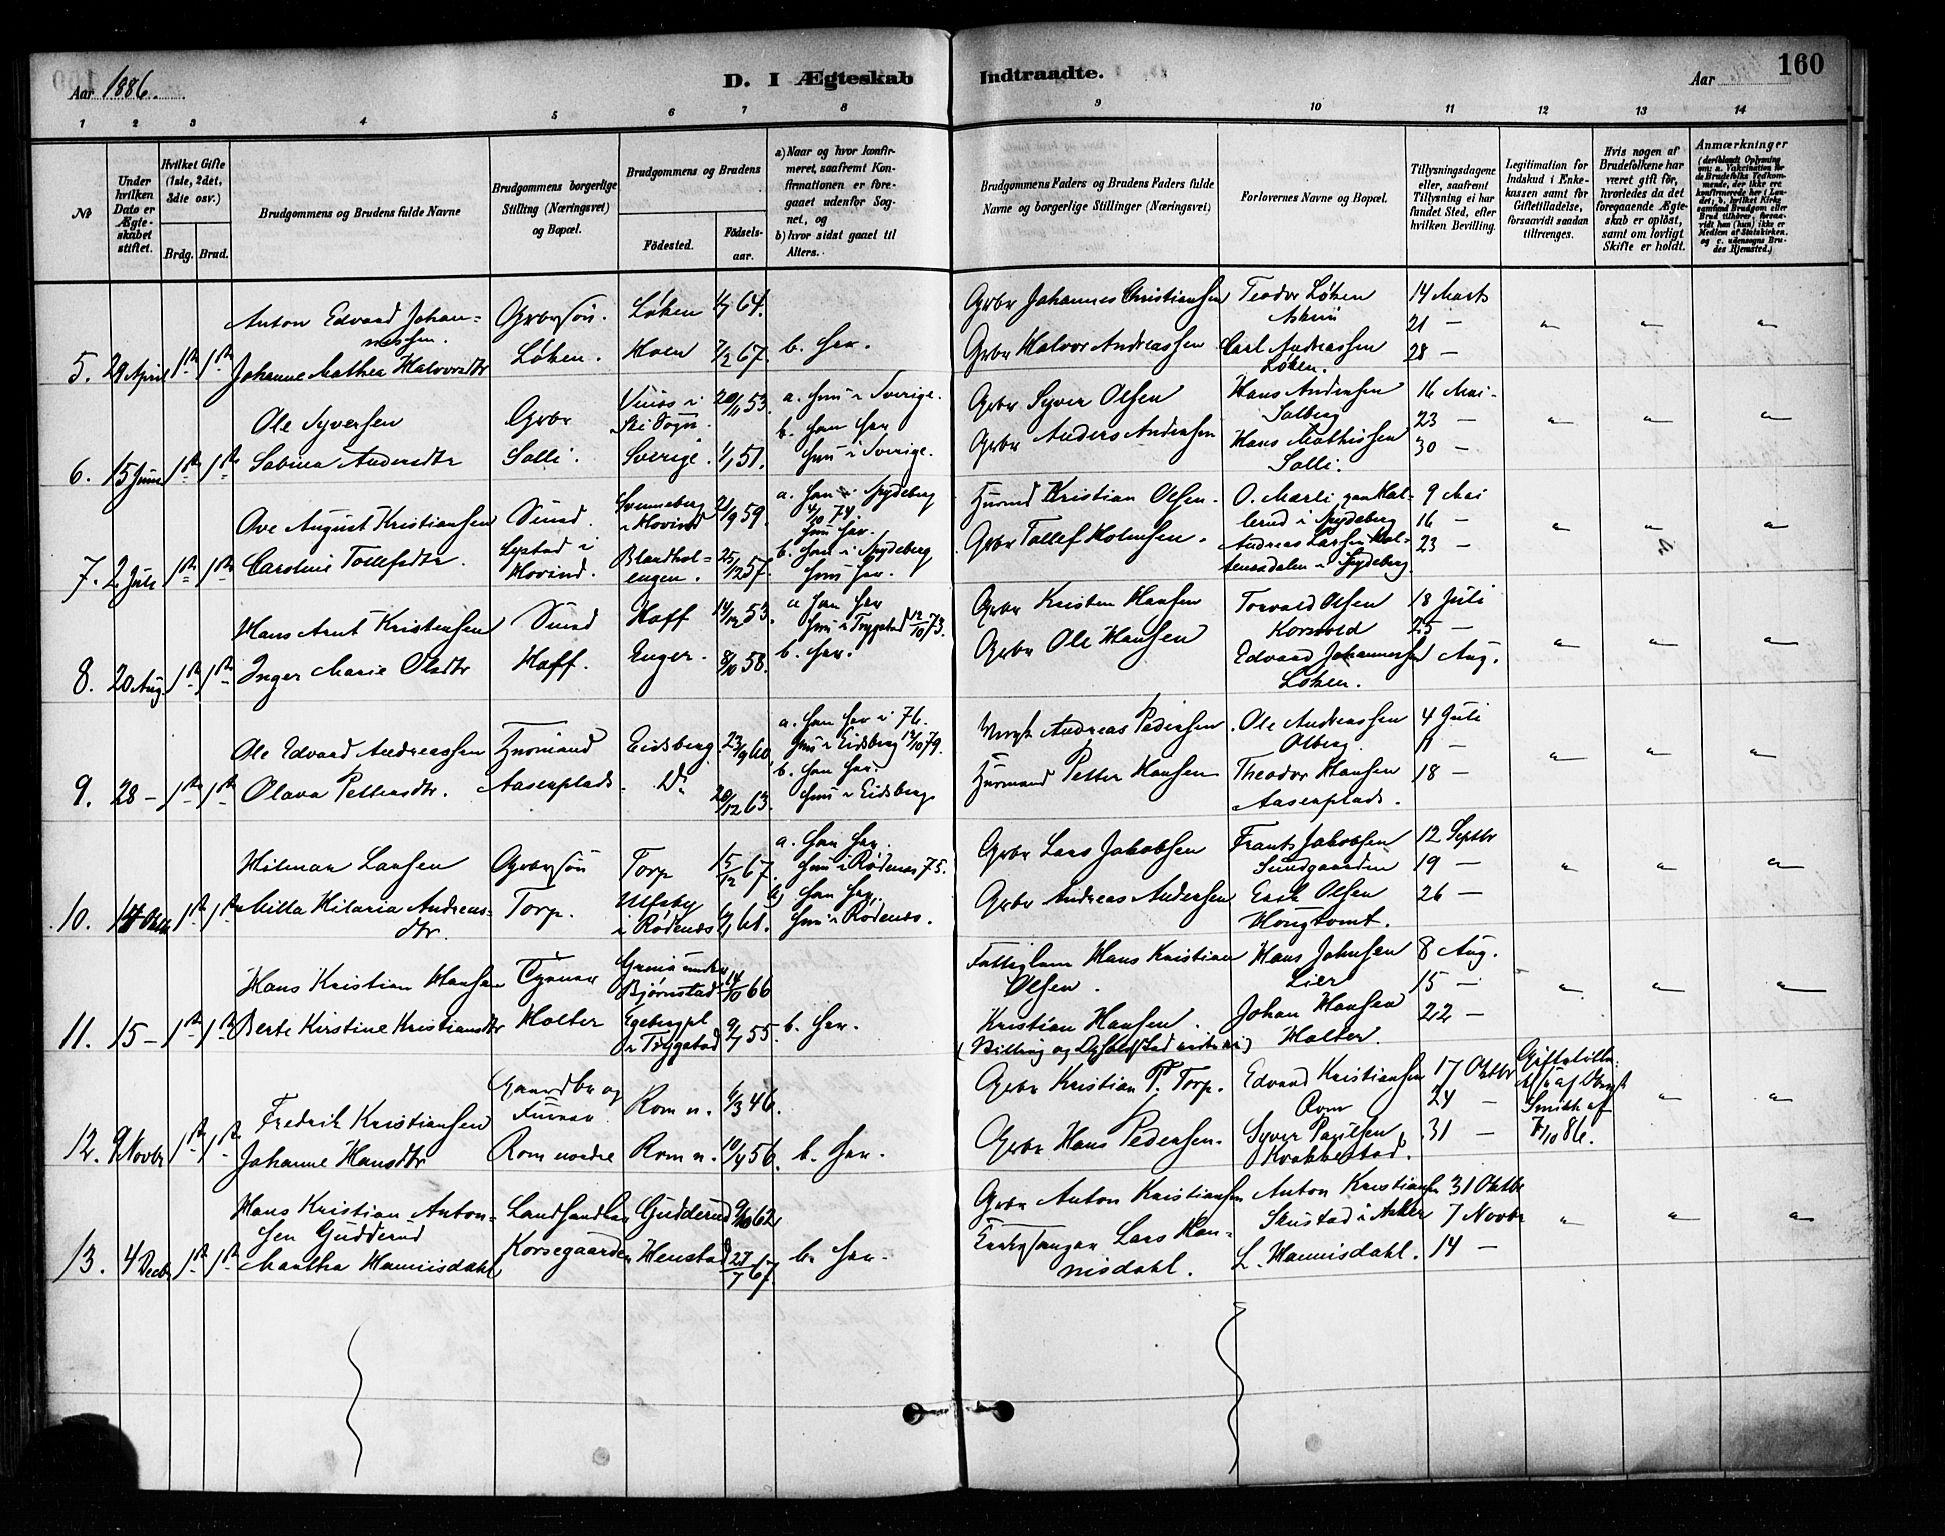 Aar 1886.
D. I Ægteskab Indtraadte.
Aar
160
1 2 3 4 5 6 7 8 9 10 11 12 13 14
No
Under hvilken Dato er Ægteskabet stiftet.
Hvilket Gifte (1ste, 2det, 3die osv.)
Brdg. Brud.
Brudgommens og Brudens fulde Navne
Brudgommens borgerlige Stilling (Næringsvei) og Bopæl.
Brudgommens og Brudens
Födested.
Födsels-aar.
a) Naar og hvor konfirmeret, saafremt Konfirmationen er foregaaet udenfor Sognet, og
b) hvor sidst gaaet til Alters.
Brudgommens Faders og Brudens Faders fulde Navne og borgerlige Stillinger (Næringsvei)
Forlovernes Navne og Bopæl.
Tillysningsdagene eller, saafremt Tillysning ei har fundet Sted, efter hvilken Bevilling.
Legitimation for Indskud i Enkekassen samt for Giftetilladelse, forsaavidt saadan tiltrænges.
Hvis nogen af Brudefolkene har været gift för, hvorledes da det foregaaende Ægteskab er oplöst, samt om lovligt Skifte er holdt.
Anmærkninger
5. 29 April 1ste 1ste
Anton Edvard Johannessen.
Johanne Mathea Halvorsdtr
Grbrsøn.
Løken.
Løken 64.
Hoen 7/2 67.
b. her.
Grbr Johannes Christiansen
Grbr Halvor Andreassen
Teodor Løken
Askim
Carl Andreassen
Løken.
14 Marts
21 —
28 —
6. 15 Juni 1ste 1ste
Ole Syversen
Sabina Andersdtr
Grbr
Solli.
Ski Sogn. 20/11 53.
Sverige. 1/1 51.
a. hun i Sverige.
b. han her
hun i Sverige.
Grbr Syver Olsen
Grbr Anders Andersen
Hans Andersen
Solberg
Hans Mathissen
Solli.
16 Mai
23 —
30 —
7. 2 Juli 1ste 1ste
Ove August Kristiansen
Caroline Tollefsdtr.
Smed.
Lystad i
Hovind.
Svenneberg
i Hovind 21/9 59.
Blandholengen. 25/12 57.
a. han i Spydeberg
4/10 74.
hun her.
b. han i Spydeberg
hun her.
Husmd Kristian Olsen.
Grbr Tollef Holmsen.
O. Mærli
i Spydeberg
Andreas Larsen
i Spydeberg.
9 Mai
16 —
23 —
8. 20 Aug. 1ste 1ste
Hans Arnt Kristensen
Inger Marie Olsdtr
Smed
Hoff.
Hoff 14/12 53.
Enger. 8/10 58.
a han her
hun i Trygstad 12/10 73.
b. her.
Grbr Kristen Hansen
Grbr Ole Hansen
Torvald Olsen
Korsvold
Edvard Johannessen
Løken.
18 Juli
25 —
1 Aug.
9. 28 — 1ste 1ste
Ole Edvard Andreassen
Olava Pettersdtr.
Husmand
Aasenplads.
Eidsberg. 23/9 60.
Do 20/12 63.
a. han her i 76.
hun i Eidsberg 12/10 79.
b. han her.
hun i Eidsberg
Andreas Pedersen
Husmand Petter Hansen
Ole Andreassen
Olberg.
Theodor Hansen
Aasenplads.
4 Juli
11 —
18 —
10. 14 Oktbr 1ste 1ste
Hilman Larsen
Milla Hilaria Andreasdtr.
Grbrsøn
Torp.
Torp 15/12 67.
Ulfsby
i Rødenæs 61.
a. han her.
hun i Rødenæs 75.
b) han her.
hun i Rødenæs.
Grbr Lars Jakobsen
Grbr Andreas Andersen
Frants Jakobsen
Sundgaarden
Erik Olsen
Hougtomt.
12 Septbr
19 —
26 —
11. 15 — 1ste 1ste
Hans Kristian Hansen
Berte Kirstine Kristiansdtr
Tjener
Holter
Grini under
Bjørnstad 14/10 66
Egebergpl
i Trygstad 9/7 55.
b. her.
Fattiglem Hans Kristian
Olsen.
Kristian Hansen.
Hans Johnsen
Lier
Johan Hansen
Holter.
8 Aug.
15 —
22 —
12. 9 Novbr 1ste 1ste
Fredrik Kristiansen
Johanne Hansdtr
Gaardbr og
Rom nordre
Rom n. 6/3 46.
Rom n. 10/4 56.
b. her.
Grbr Kristian P. Torp.
Grbr Hans Pedersen.
Edvard Kristiansen
Rom
Syver Paulsen
Krokkestad.
17 Oktbr
24 —
31 —
Smith af
7/10 86.
13. 4 Decbr 1ste 1ste
Hans Kristian Antonsen Gudderud
Martha Hannisdahl
Landhandler
Korsegaarden
Gudderud 9/10 62
Henstad 27/7 67.
b. her.
Grbr Anton Kristiansen
Kirkesanger Lars Hannisdahl.
Anton Kristiansen
Skustad i Asker
L. Hannisdahl.
31 Oktbr
7 Novbr
14 —